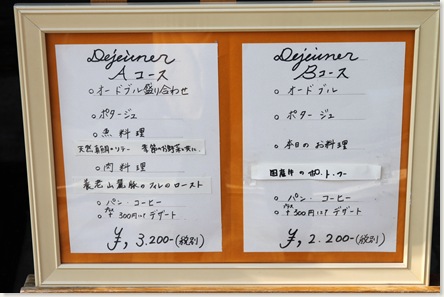 Dejeuner
Aコース
○オードブル盛り合わせ
○ポタージュ
○魚料理
天然真鯛のソテー 季節のお野菜と共に
○肉料理
養老山麓豚のフィレのロースト
○パン・コーヒー
○プラス+300円にてデザート
¥,3.200-(税別)
Dejeuner
Bコース
○オードブル
○ポタージュ
○本日のお料理
国産牛のポ.ト.フー
○パン・コーヒー
○プラス+300円にてデザート
¥,2.200-(税別)